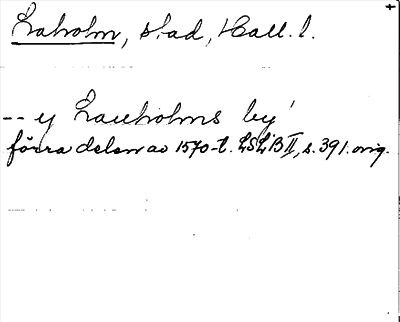 Laholm, stad, Hall. l.
-- y Lauholms by'
förra delen av 1570-t. LSLB II, s. 391. orig.